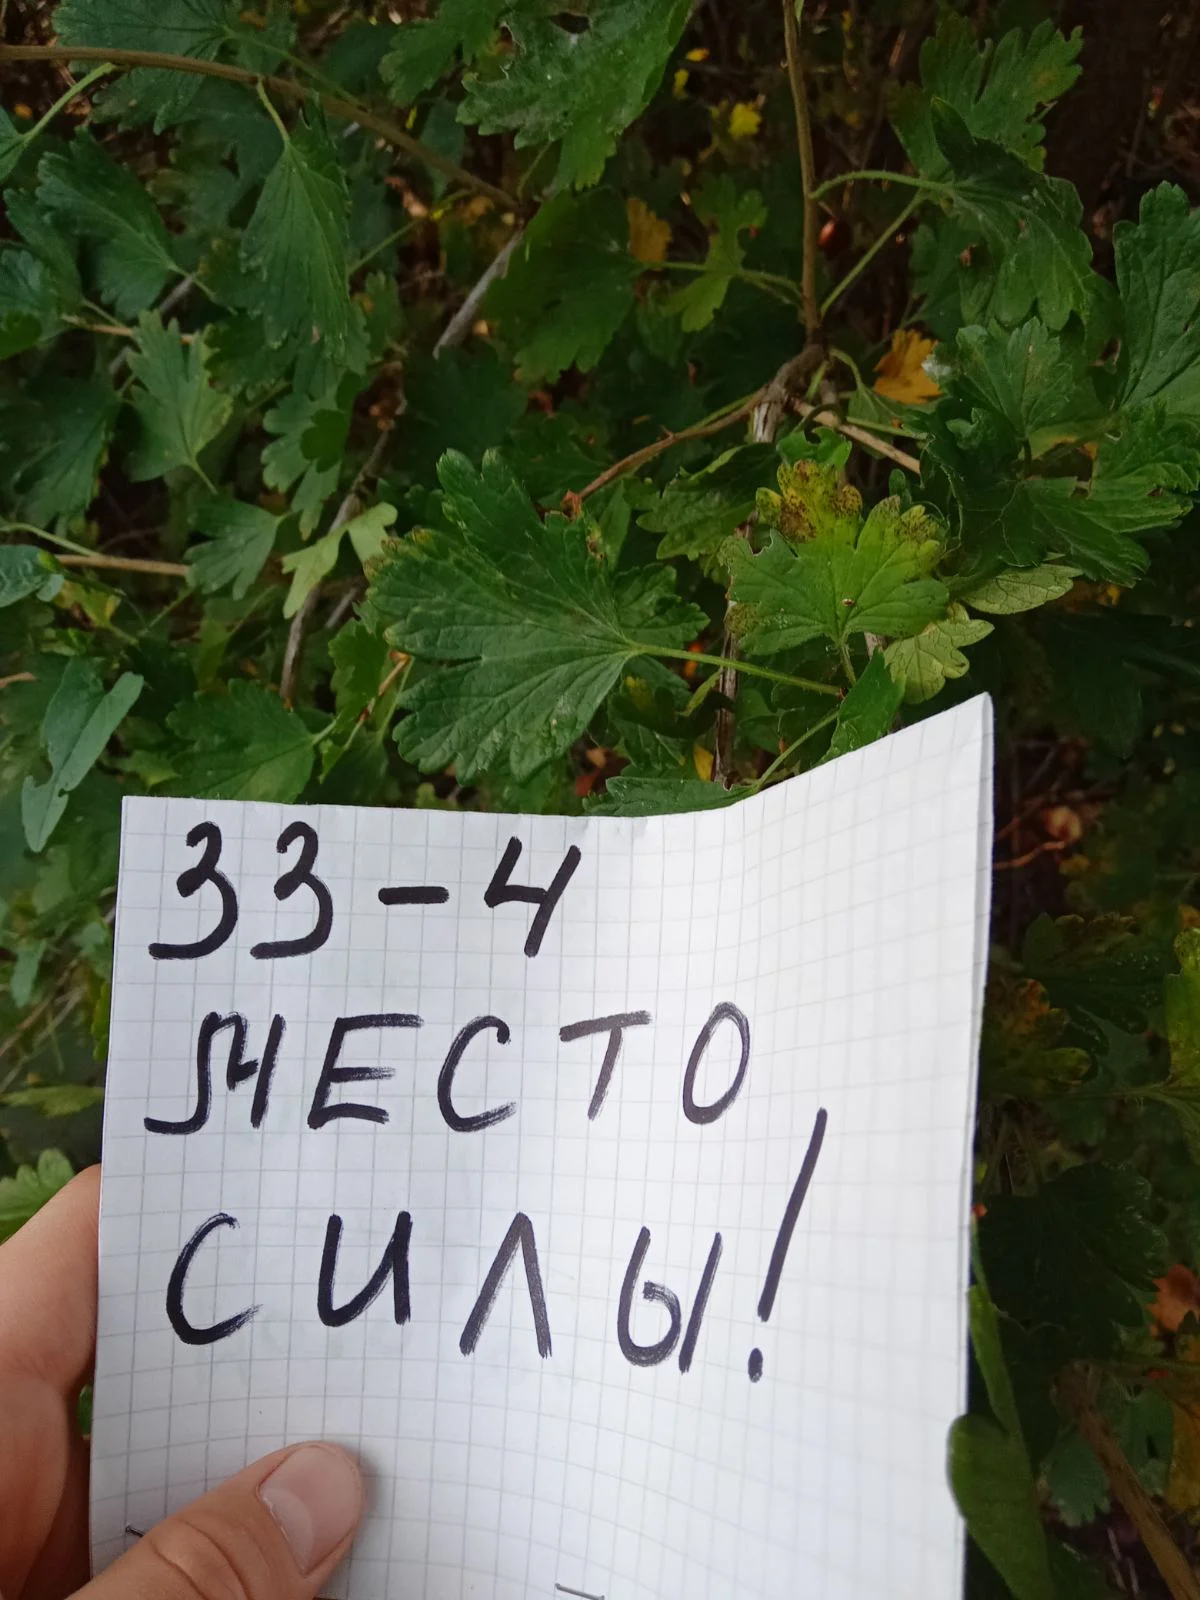 33-4
МЕСТО
СИЛЫ!